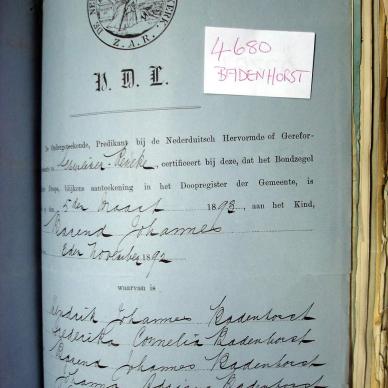 Z. A. R.
4680
BADENHORST
V. D. L.
De Ondergeteekende, Predikant bij de Nederduitsch Hervormde of Gerefor-
, certificeert bij deze, dat het Bondzegel
Doops, blijkens aanteekening in het Doopregister der Gemeente, is
5 der Maart 1893, aan het Kind,
Barend Johannes
November 1892
waarvan is
Hendrik Johannes Badenhorst
Frederika Cornelia Badenhorst
Barend Johannes Badenhorst
Johanna Adriana Badenhorst